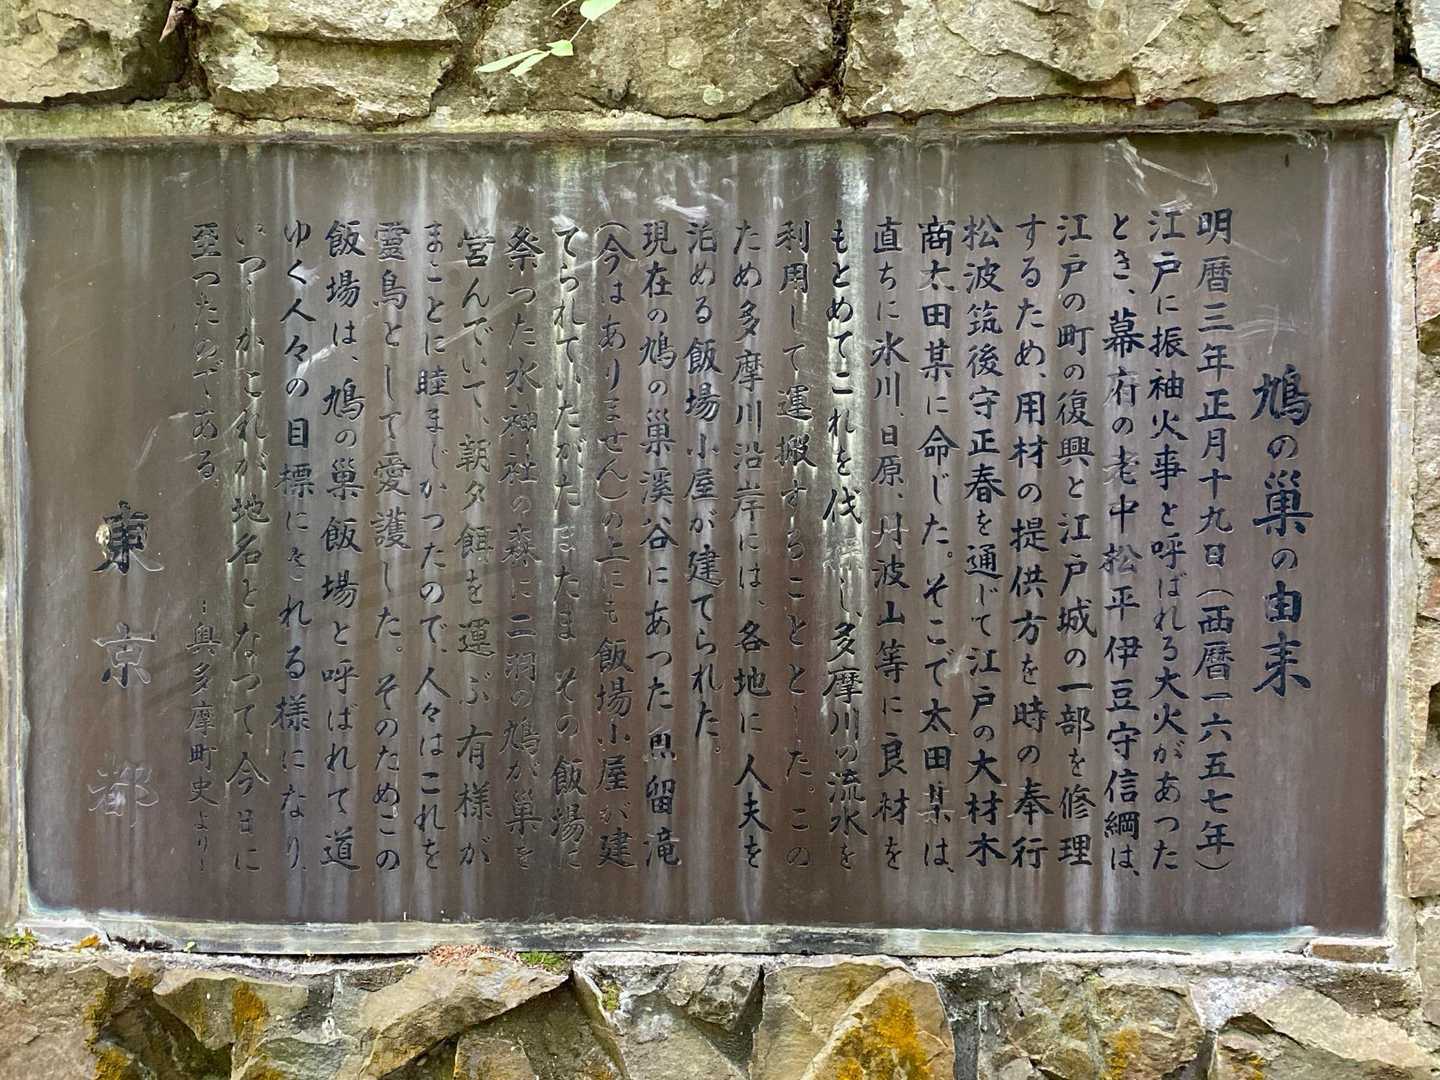 鳩の巣の由来
明暦三年正月十九日(西暦一六五七年)
江戸に振袖火事と呼ばれる大火があつた
とき、幕府の老中松平伊豆守信綱は、
江戸の町の復興と江戸城の一部を修理
するため、用材の提供方を時の奉行
松波筑後守正春を通じて江戸の大材木
商太田某に命じた。そこで太田某は、
直ちに氷川、日原、丹波山等に良材を
もとめてこれを伐採し、多摩川の流水を
利用して運搬することとした。この
ため多摩川沿岸には、各地に人夫を
泊める飯場小屋が建てられた。
現在の鳩の巣溪谷にあつた魚留滝
(今はありません)の上にも飯場小屋が建
てられていたがたまたま その飯場に
祭つた水神社の森に二羽の鳩が巣を
営んでいて、朝夕餌を運ぶ有様が
まことに睦まじかつたので、人々はこれを
霊鳥として愛護した。そのためこの
飯場は、鳩の巣飯場と呼ばれて道
ゆく人々の目標にされる様になり、
いつしかこれが地名となつて今日に
至つたのである。
-奥多摩町史より-
東京都